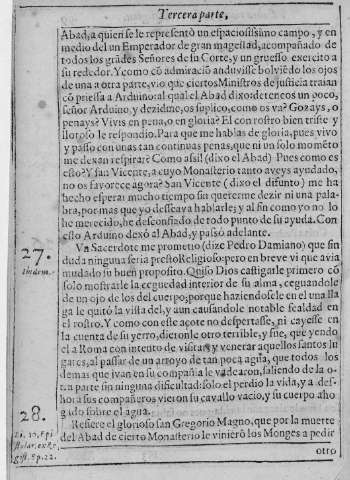 Tercera parte,
Abad, a quien se le representò un espaciosissimo campo, y en
medio del un Emperador de gran magestad, acompañado de
todos los grãdes Señores de su Corte, y un gruesso exercito a
su rededor. Y como cõ admiraciõ anduviesse bolviẽdo los ojos
de una a otra parte, vio que ciertos Ministros de justicia traian
cõ priessa a Arduino: al qual el Abad dixo: deteneos un poco,
señor Arduino, y dezidme, os suplico, como os va? Gozays, o
penays? Vivis en pena, o en gloria? El con rostro bien triste y
lloroso le respondio. Para que me hablas de gloria, pues vivo
y passo con unas tan continuas penas, que ni un solo momẽto
me dexan respirar? Como assi? (dixo el Abad) Pues como es
esto? Y san Vicente, a cuyo Monasterio tanto aveys ayudado,
no os favorece agora? San Vicente (dixo el difunto) me ha
hecho esperar mucho tiempo sin quererme dezir ni una pala-
bra, por mas que yo desseava hablarle; y al fin como yo no lo
he merecido, he desconfiado de todo punto de su ayuda. Con
esto Arduino dexò al Abad, y passò adelante.
27. Un Sacerdote me prometio (dize Pedro Damiano) que sin
Idem. duda ninguna seria presto Religioso: pero en breve vi que avia
mudado su buen proposito. Quiso Dios castigarle primero cõ
solo mostrarle la ceguedad interior de su alma, cegandole
de un ojo de los del cuerpo; porque haziendosele en el una lla
ga le quitò la vista del, y aun causandole notable fealdad en
el rostro. Y como con este açote no despertasse, ni cayesse en
la cuenta de su yerro, dieronle otro terrible, y fue, que yendo
el a Roma con intento de visitar y venerar aquellos santos lu
gares, al passar de un arroyo de tan poca agua, que todos los
demas que ivan en su compañia le vadearon, saliendo de la o-
tra parte sin ninguna dificultad: solo el perdio la vida, y a des-
hora sus compañeros vieron su cavallo vacio, y su cuerpo aho
gado sobre el agua.
28. Refiere el glorioso san Gregorio Magno, que por la muerte
del Abad de cierto Monasterio le vinierõ los Monges a pedir
otro